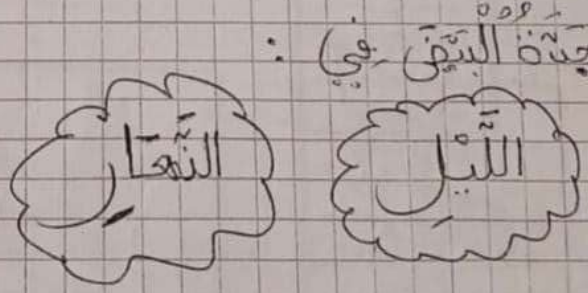 البَيْضَ فِي :
اللَّيْلِ
النَّهَارِ